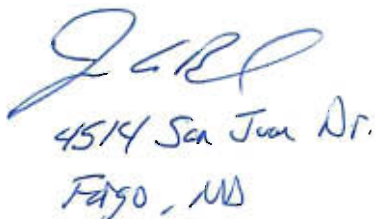 4514 San Juan Dr.
Fargo, ND